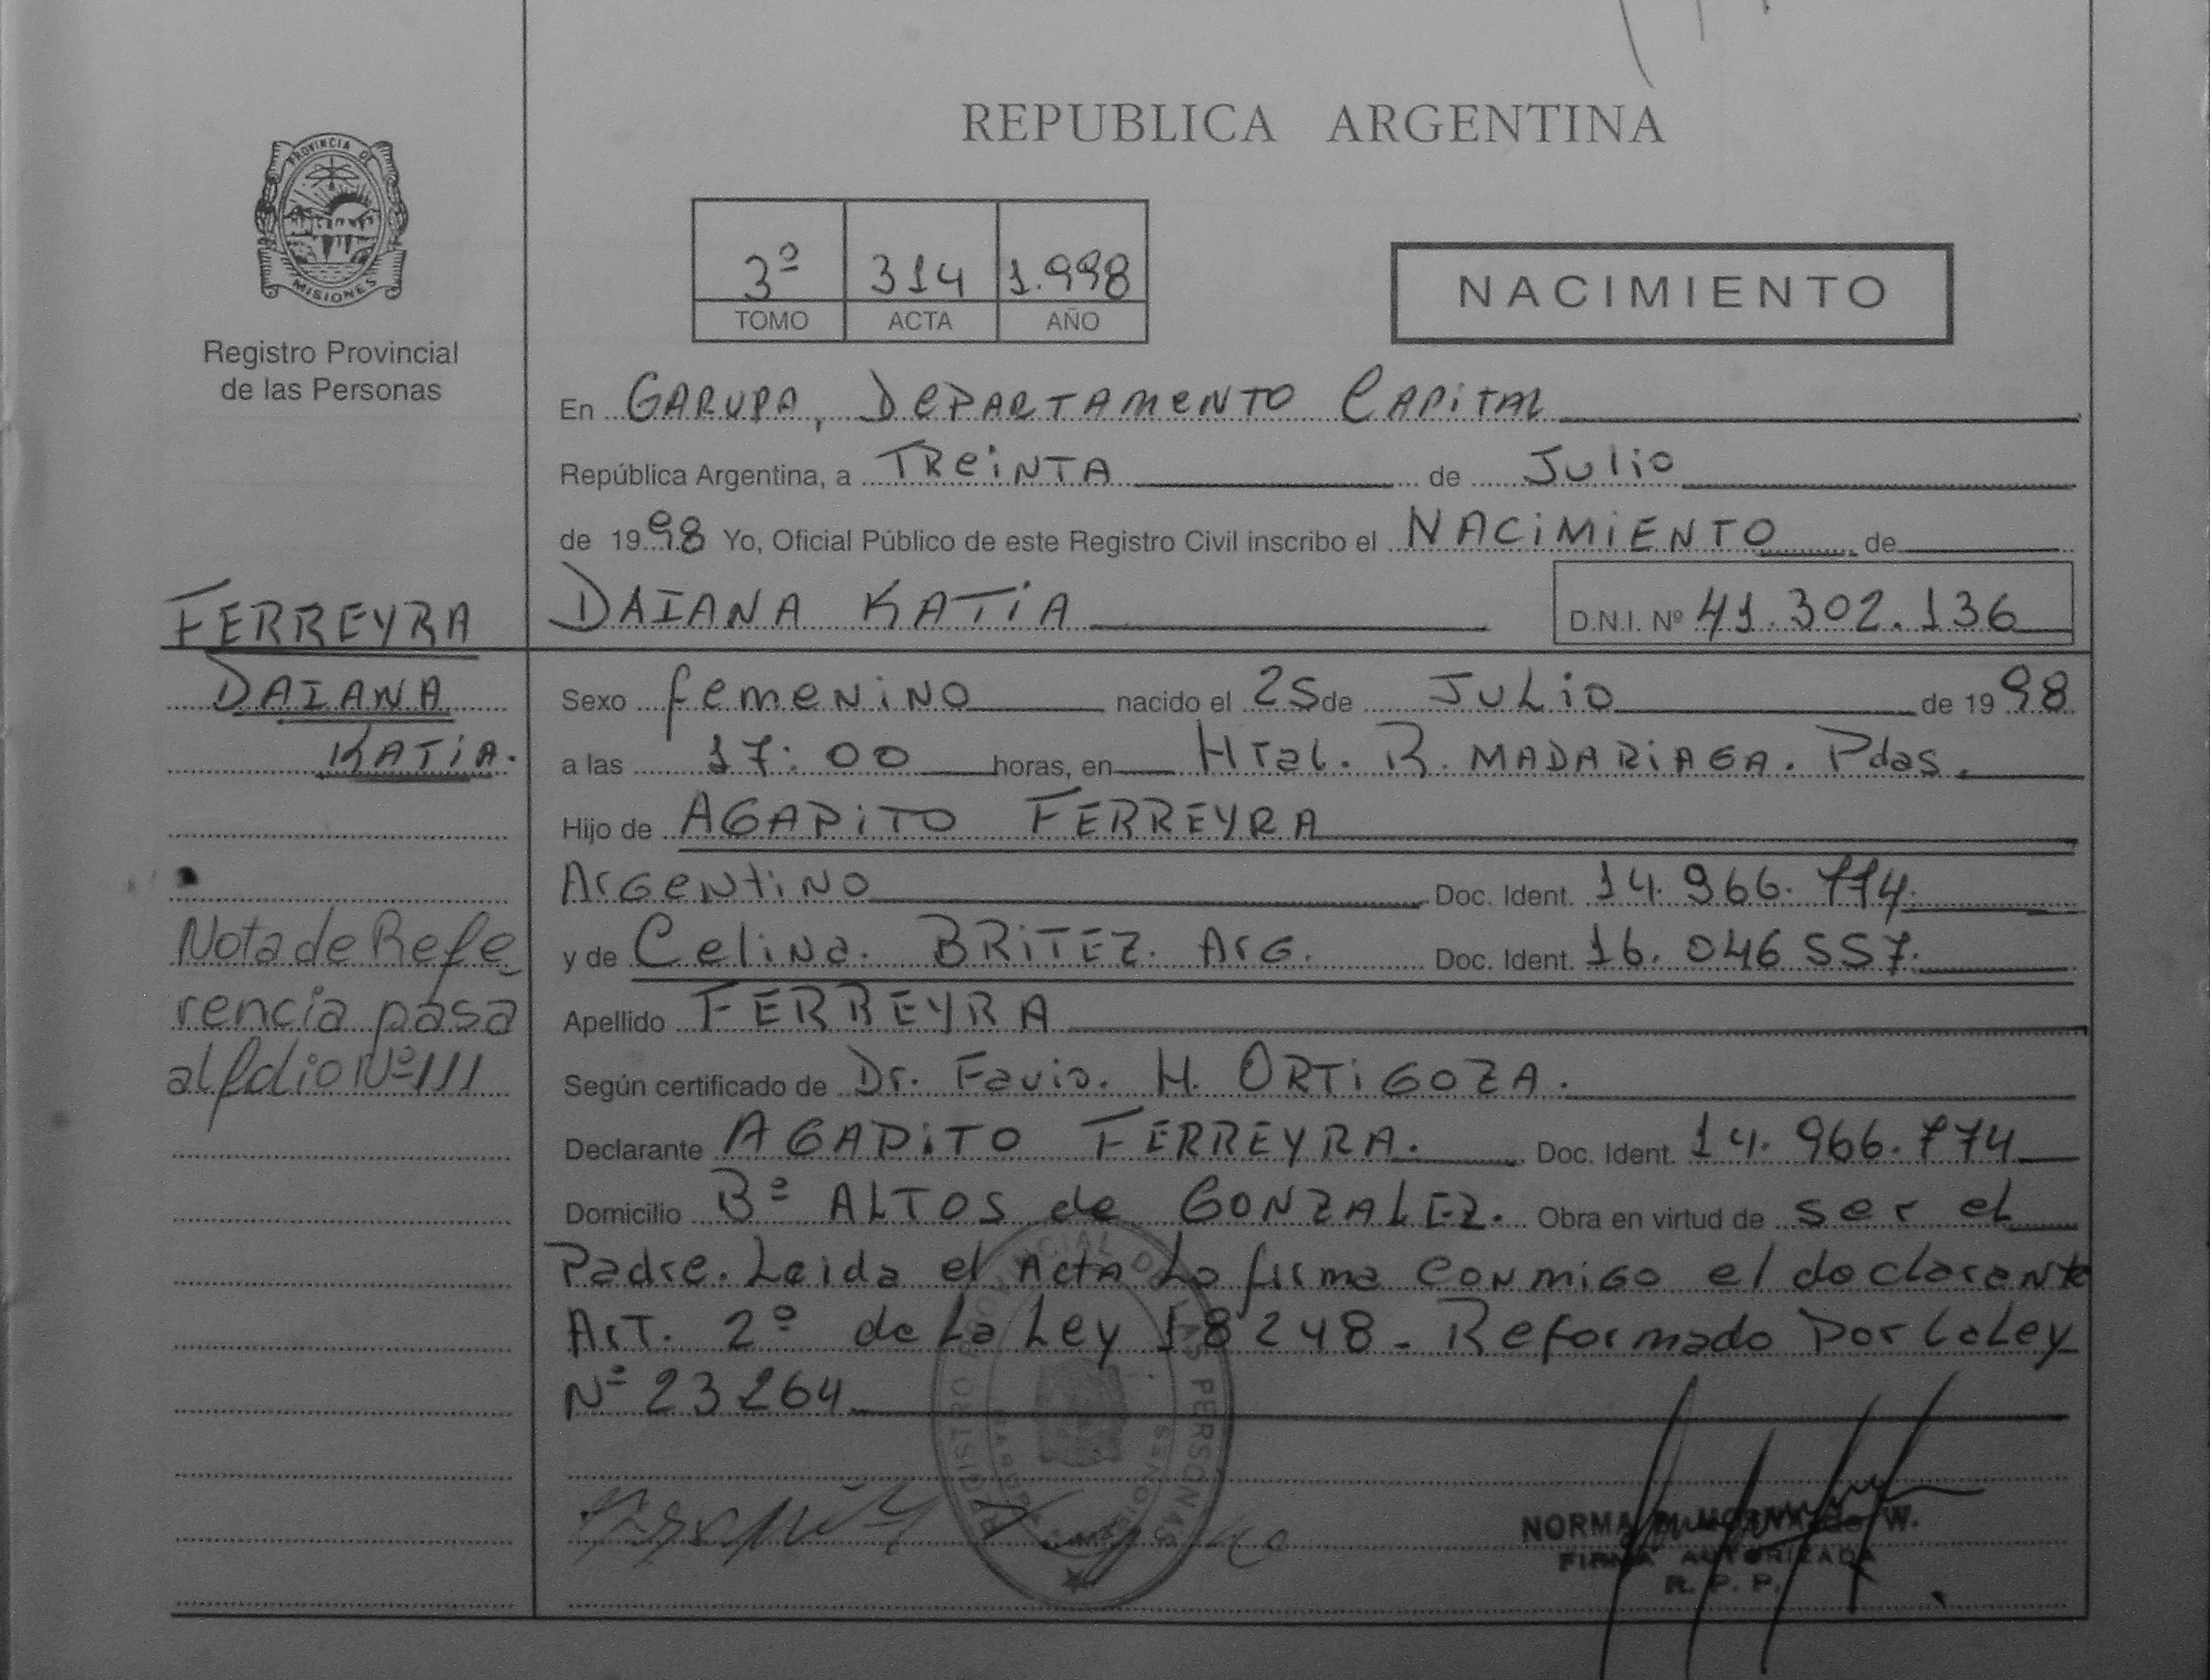 REPUBLICA ARGENTINA
PROVINCIA DE
MISIONES
Registro Provincial
de las Personas
3º 314 1.998
TOMO ACTA AÑO
NACIMIENTO
En GARUPA, DEPARTAMENTO CAPITAL
República Argentina, a TREINTA de Julio
de 1998 Yo, Oficial Público de este Registro Civil inscribo el NACIMIENTO de
DAIANA KATIA D.N.I. Nº 41.302.136
FERREYRA
DAIANA
KATIA.
Sexo femenino nacido el 25 de JULIO de 1998
a las 17:00 horas, en Htal. R. MADARIAGA. Pdas.
Hijo de AGAPITO FERREYRA
Argentino Doc. Ident. 14.966.774.
y de Celina. BRITEZ. Arg. Doc. Ident. 16.046 557.
Apellido FERREYRA
Según certificado de Dr. Favio. H. ORTIGOZA.
Declarante AGAPITO FERREYRA. Doc. Ident. 14.966.774
Domicilio Bº ALTOS de GONZALEZ. Obra en virtud de ser el
Padre. Leida el Acta La firma conmigo el declarante
Art. 2º de La Ley 18248 - Reformado Por La Ley
Nº 23264
Nota de Refe
rencia pasa
al folio Nº 111
REGISTRO PROVINCIAL DE LAS PERSONAS
NORMA W.
FIRMA AUTORIZADA
R. P. P.